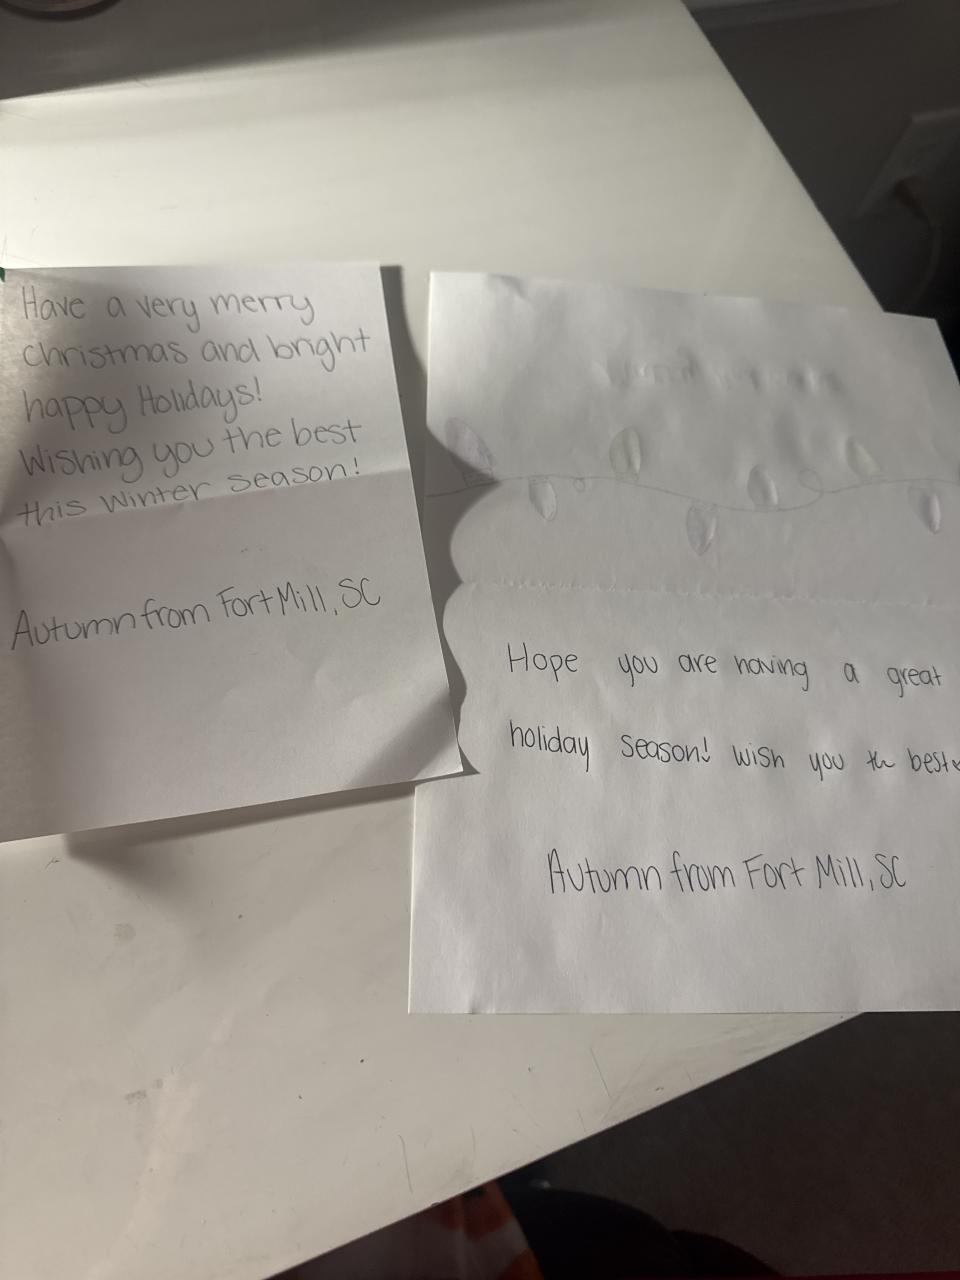 Have a very merry
christmas and bright
happy Holidays!
Wishing you the best
this winter season!
Autumn from Fort Mill, SC
Hope you are having a great
holiday season! wish you the best
Autumn from Fort Mill, SC